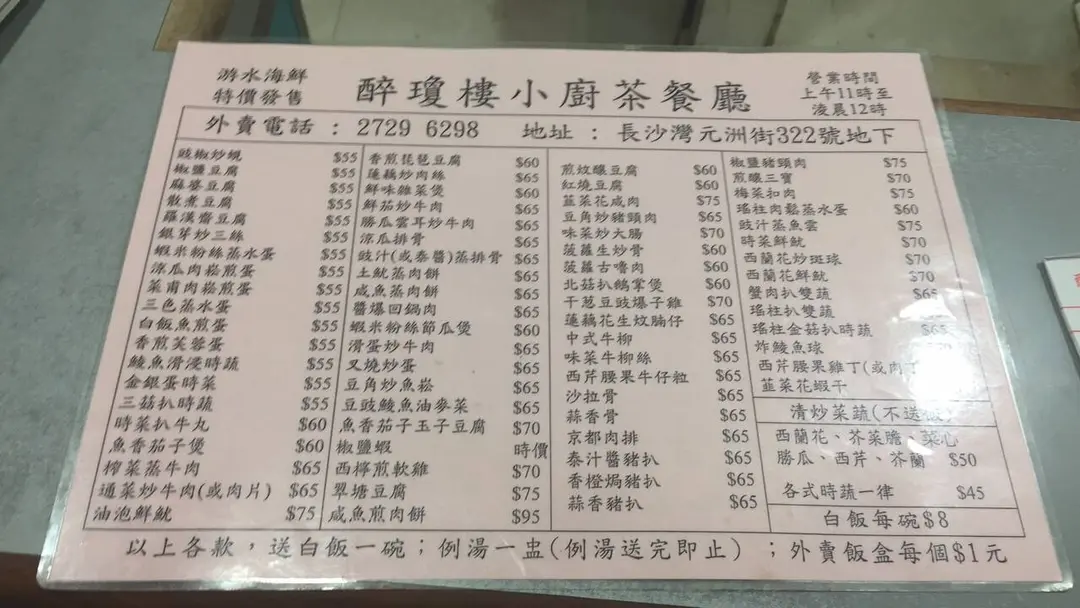 游水海鮮
特價發售
醉瓊樓小廚茶餐廳
營業時間
上午11時至
凌晨12時
外賣電話 : 2729 6298 地址 : 長沙灣元洲街322號地下
豉椒炒蜆 $55
椒鹽豆腐 $55
麻婆豆腐 $55
散煮豆腐 $55
羅漢齋豆腐 $55
銀芽炒三絲 $55
蝦米粉絲蒸水蛋 $55
涼瓜肉崧煎蛋 $55
菜甫肉崧煎蛋 $55
三色蒸水蛋 $55
白飯魚煎蛋 $55
香煎芙蓉蛋 $55
鯪魚滑浸時蔬 $55
金銀蛋時菜 $55
三菇扒時蔬 $55
時菜扒牛丸 $60
魚香茄子煲 $60
榨菜蒸牛肉 $65
通菜炒牛肉(或肉片) $65
油泡鮮魷 $75
香煎琵琶豆腐 $60
蓮藕炒肉絲 $65
鮮味雜菜煲 $60
鮮茄炒牛肉 $65
勝瓜雲耳炒牛肉 $65
涼瓜排骨 $65
豉汁(或泰醬)蒸排骨 $65
土魷蒸肉餅 $65
咸魚蒸肉餅 $65
醬爆回鍋肉 $65
蝦米粉絲節瓜煲 $60
滑蛋炒牛肉 $65
叉燒炒蛋 $65
豆角炒魚崧 $65
豆豉鯪魚油麥菜 $65
魚香茄子玉子豆腐 $70
椒鹽蝦 時價
西檸煎軟雞 $70
翠塘豆腐 $75
咸魚煎肉餅 $95
煎炆釀豆腐 $60
紅燒豆腐 $60
韮菜花咸肉 $75
豆角炒豬頸肉 $65
味菜炒大腸 $70
菠蘿生炒骨 $60
菠蘿古嚕肉 $60
北菇扒鵝掌煲 $60
干葱豆豉爆子雞 $70
蓮藕花生炆腩仔 $65
中式牛柳 $65
味菜牛柳絲 $65
西芹腰果牛仔粒 $65
沙拉骨 $65
蒜香骨 $65
京都肉排 $65
泰汁醬豬扒 $65
香橙焗豬扒 $65
蒜香豬扒 $65
椒鹽豬頸肉 $75
煎釀三寶 $70
梅菜扣肉 $75
瑤柱肉鬆蒸水蛋 $60
豉汁蒸魚雲 $75
時菜鮮魷 $70
西蘭花炒斑球 $70
西蘭花鮮魷 $70
蟹肉扒雙蔬 $65
瑤柱扒雙蔬
瑤柱金菇扒時蔬 $65
炸鯪魚球
西芹腰果雞丁(或肉丁
韮菜花蝦干
清炒菜蔬(不送飯)
西蘭花、芥菜膽、菜心
勝瓜、西芹、芥蘭 $50
各式時蔬一律 $45
白飯每碗$8
以上各款，送白飯一碗；例湯一盅(例湯送完即止)；外賣飯盒每個$1元